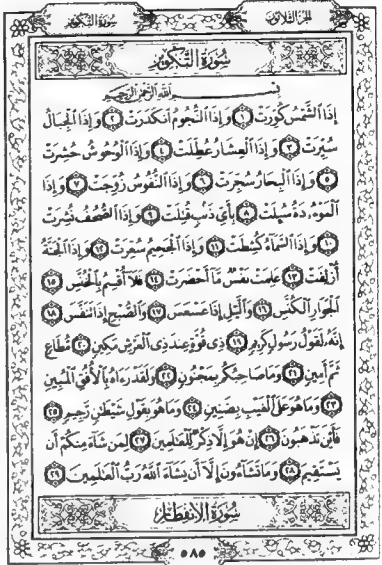 الجزء الثلاثون
سورة التكوير
سُورَةُ التَّكْوِيرِ
بِسْمِ اللَّهِ الرَّحْمَٰنِ الرَّحِيمِ
إِذَا الشَّمْسُ كُوِّرَتْ ١ وَإِذَا النُّجُومُ انْكَدَرَتْ ٢ وَإِذَا الْجِبَالُ
سُيِّرَتْ ٣ وَإِذَا الْعِشَارُ عُطِّلَتْ ٤ وَإِذَا الْوُحُوشُ حُشِرَتْ
٥ وَإِذَا الْبِحَارُ سُجِّرَتْ ٦ وَإِذَا النُّفُوسُ زُوِّجَتْ ٧ وَإِذَا
الْمَوْءُۥدَةُ سُئِلَتْ ٨ بِأَيِّ ذَنْبٍ قُتِلَتْ ٩ وَإِذَا الصُّحُفُ نُشِرَتْ
١٠ وَإِذَا السَّمَاءُ كُشِطَتْ ١١ وَإِذَا الْجَحِيمُ سُعِّرَتْ ١٢ وَإِذَا الْجَنَّةُ
أُزْلِفَتْ ١٣ عَلِمَتْ نَفْسٌ مَّا أَحْضَرَتْ ١٤ فَلَا أُقْسِمُ بِالْخُنَّسِ ١٥
الْجَوَارِ الْكُنَّسِ ١٦ وَاللَّيْلِ إِذَا عَسْعَسَ ١٧ وَالصُّبْحِ إِذَا تَنَفَّسَ ١٨
إِنَّهُ لَقَوْلُ رَسُولٍ كَرِيمٍ ١٩ ذِي قُوَّةٍ عِنْدَ ذِي الْعَرْشِ مَكِينٍ ٢٠ مُّطَاعٍ
ثَمَّ أَمِينٍ ٢١ وَمَا صَاحِبُكُم بِمَجْنُونٍ ٢٢ وَلَقَدْ رَءَاهُ بِالْأُفُقِ الْمُبِينِ
٢٣ وَمَا هُوَ عَلَى الْغَيْبِ بِضَنِينٍ ٢٤ وَمَا هُوَ بِقَوْلِ شَيْطَٰنٍ رَّجِيمٍ ٢٥
فَأَيْنَ تَذْهَبُونَ ٢٦ إِنْ هُوَ إِلَّا ذِكْرٌ لِّلْعَٰلَمِينَ ٢٧ لِمَن شَاءَ مِنكُمْ أَن
يَسْتَقِيمَ ٢٨ وَمَا تَشَاءُونَ إِلَّا أَن يَشَاءَ اللَّهُ رَبُّ الْعَٰلَمِينَ ٢٩
سُورَةُ الِانْفِطَارِ
٥٨٥